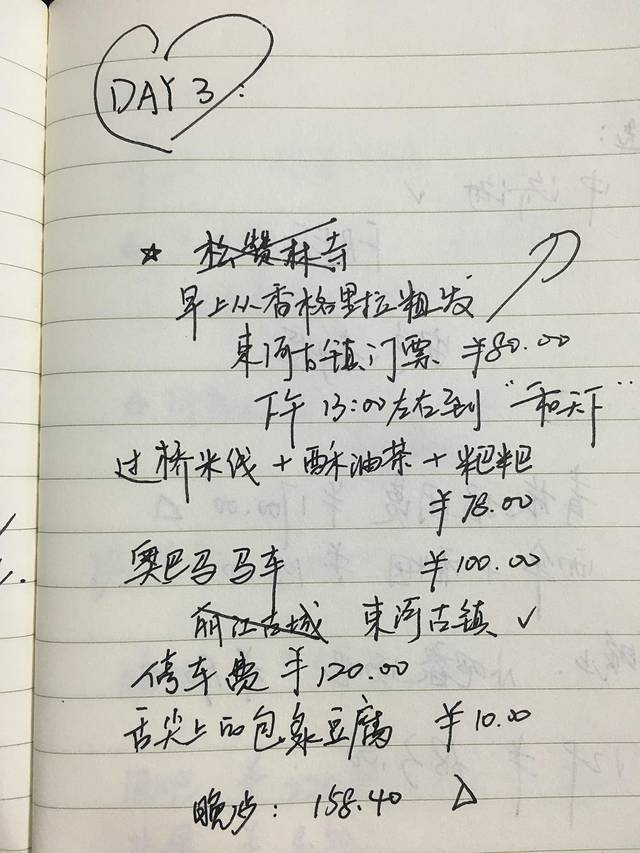 DAY 3:
★ 松赞林寺
早上从香格里拉出发
束河古镇门票 ¥80.00
下午 13:00左右到 "和天下"
过桥米线 + 酥油茶 + 粑粑
¥78.00
奥巴马马车 ¥100.00
丽江古城 束河古镇 ✓
停车费 ¥120.00
舌尖上的包浆豆腐 ¥10.00
晚步: 158.40 △